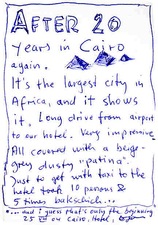 AFTER 20
years in Cairo
again.
It's the largest city in
Africa, and it shows
it. Long drive from airport
to our hotel. Very impressive
All covered with a beige-
grey dusty "patina".
Just to get with taxi to the
hotel took 10 persons &
5 times bakschich...
... and i guess that's only the beginning
25 Cairo, Hotel